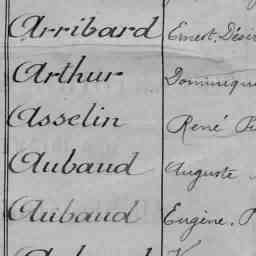 Arribard Ernest, Dési
Arthur Dominiqu
Asselin René
Aubaud Auguste
Aubaud Eugène.